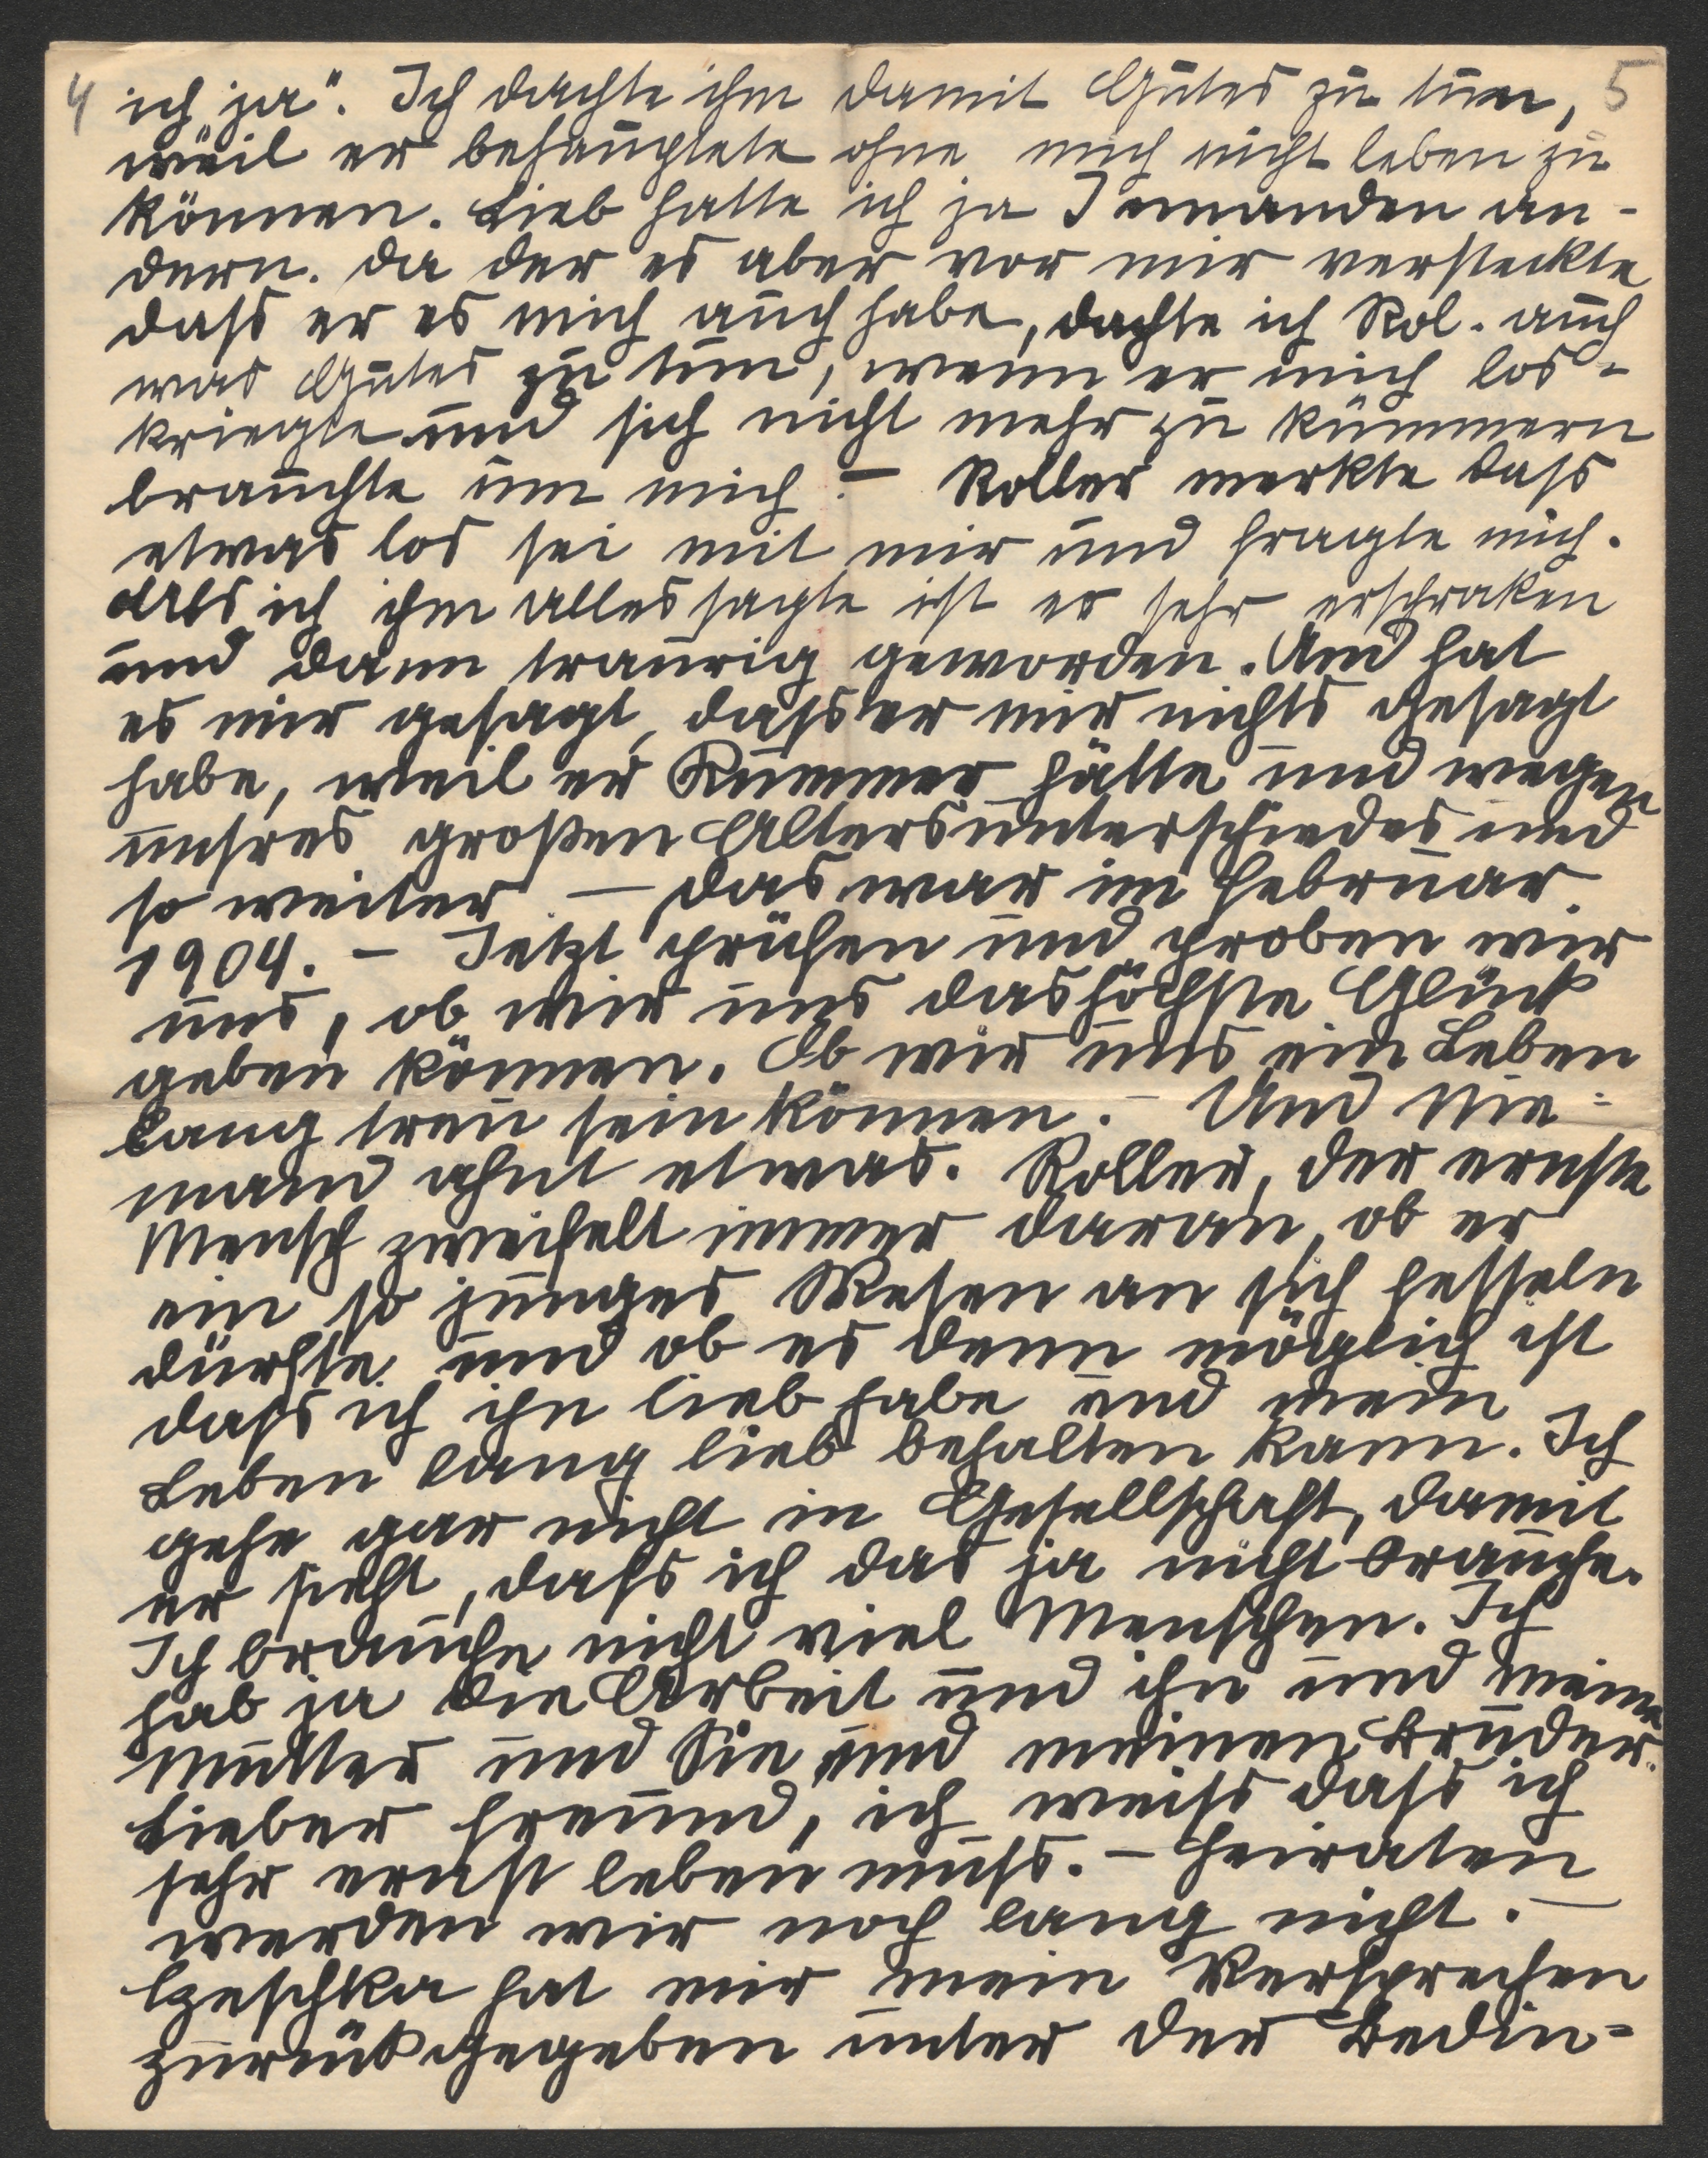 4 ich „ja". Ich dachte ihm damit Gutes zu tun, 5
weil er behauptete ohne mich nicht leben zu
können. Lieb hatte ich ja Jemanden an-
dern. Da der es aber vor mir versteckte
dass er es mich auch habe, dachte ich Rol. auch
was Gutes zu tun, wenn er mich los-
kriegte und sich nicht mehr zu kümmern
brauchte um mich. – Roller merkte dass
etwas los sei mit mir und fragte mich.
Als ich ihm alles sagte ist er sehr erschraken
und dann traurig geworden. Und hat
es mir gesagt, dass er mir nichts gesagt
habe, weil er Kummer hätte und wegen
unsres großen Altersunterschiedes und
so weiter. – Das war im Februar
1904. – Jetzt prüfen und proben wir
uns, ob wir uns das höchste Glück
geben können. Ob wir uns ein Leben
lang treu sein können. – Und Nie-
mand ahnt etwas. Roller, der ernste
Mensch zweifelt immer daran, ob er
ein so junges Wesen an sich fesseln
dürfte und ob es denn möglich ist
dass ich ihn lieb habe und mein
Leben lang lieb behalten kann. Ich
gehe gar nicht in Gesellschaft, damit
er sieht, dass ich das ja nicht brauche.
Ich brauche nicht viel Menschen. Ich
hab ja die Arbeit und ihn und meine
Mutter und Sie und meinen Bruder.
Lieber Freund, ich weiss dass ich
sehr ernst leben muss. – Heiraten
werden wir noch lang nicht. –
Czeschka hat mir mein Versprechen
zurückgegeben unter der Bedin-